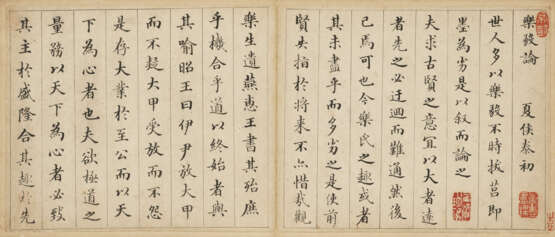 樂毅論　夏侯泰初
世人多以樂毅不時拔莒即
墨為劣是以叙而論之
夫求古賢之意宜以大者遠
者先之必迂迴而難通然後
已焉可也今樂氏之趣或者
其未盡乎而多劣之是使前
賢失指於將來不亦惜哉觀
樂生遺燕惠王書其殆庶
乎機合乎道以終始者與
其喻昭王曰伊尹放大甲
而不疑大甲受放而不怨
是存大業於至公而以天
下為心者也夫欲極道之
量務以天下為心者必致
其主於盛隆合其趣於先